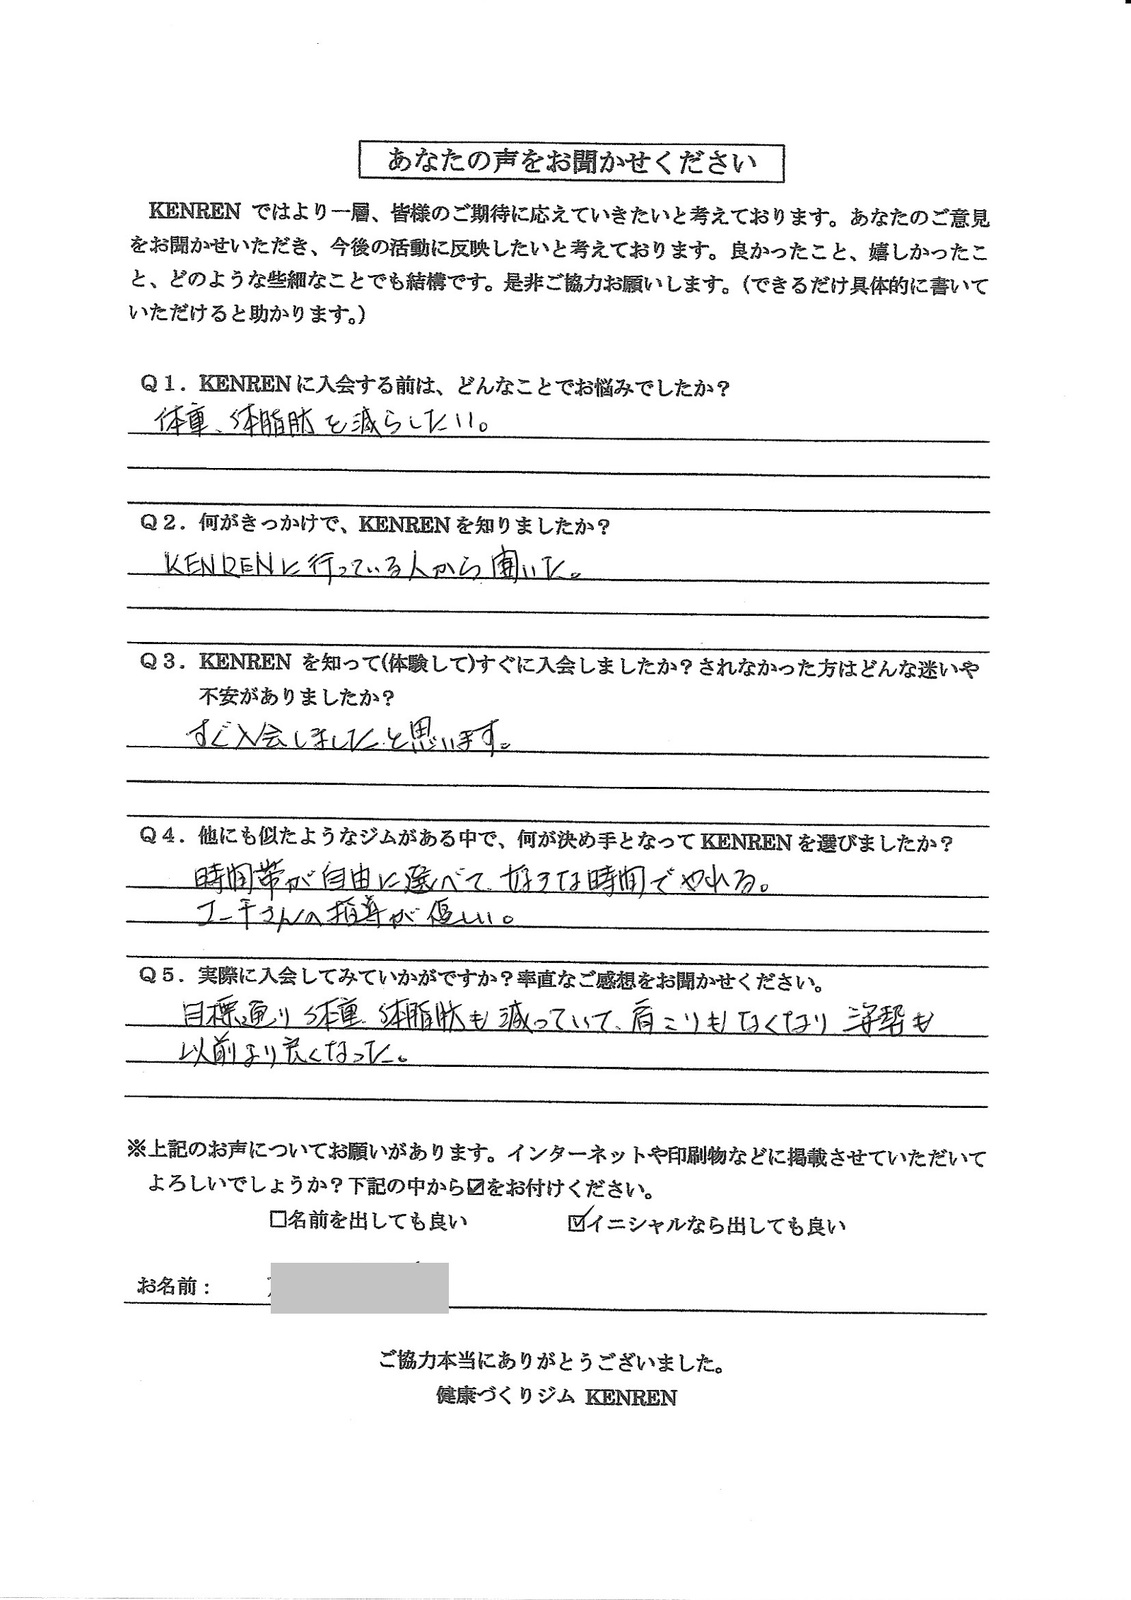 あなたの声をお聞かせください
KENREN ではより一層、皆様のご期待に応えていきたいと考えております。あなたのご意見
をお聞かせいただき、今後の活動に反映したいと考えております。良かったこと、嬉しかったこ
と、どのような些細なことでも結構です。是非ご協力お願いします。(できるだけ具体的に書いて
いただけると助かります。)
Q1．KENRENに入会する前は、どんなことでお悩みでしたか？
体重、体脂肪を減らしたい。
Q2．何がきっかけで、KENRENを知りましたか？
KENRENに行っている人から聞いた。
Q3．KENREN を知って(体験して)すぐに入会しましたか？されなかった方はどんな迷いや
不安がありましたか？
すぐ入会しましたと思います。
Q4．他にも似たようなジムがある中で、何が決め手となってKENRENを選びましたか？
時間帯が自由に選べて、好きな時間でやれる。
コーチさんの指導が優しい。
Q5．実際に入会してみていかがですか？率直なご感想をお聞かせください。
目標通り体重、体脂肪も減っていて、肩こりもなくなり姿勢も
以前より良くなった。
※上記のお声についてお願いがあります。インターネットや印刷物などに掲載させていただいて
よろしいでしょうか？下記の中から☑をお付けください。
☐名前を出しても良い ☑イニシャルなら出しても良い
お名前：
ご協力本当にありがとうございました。
健康づくりジム KENREN